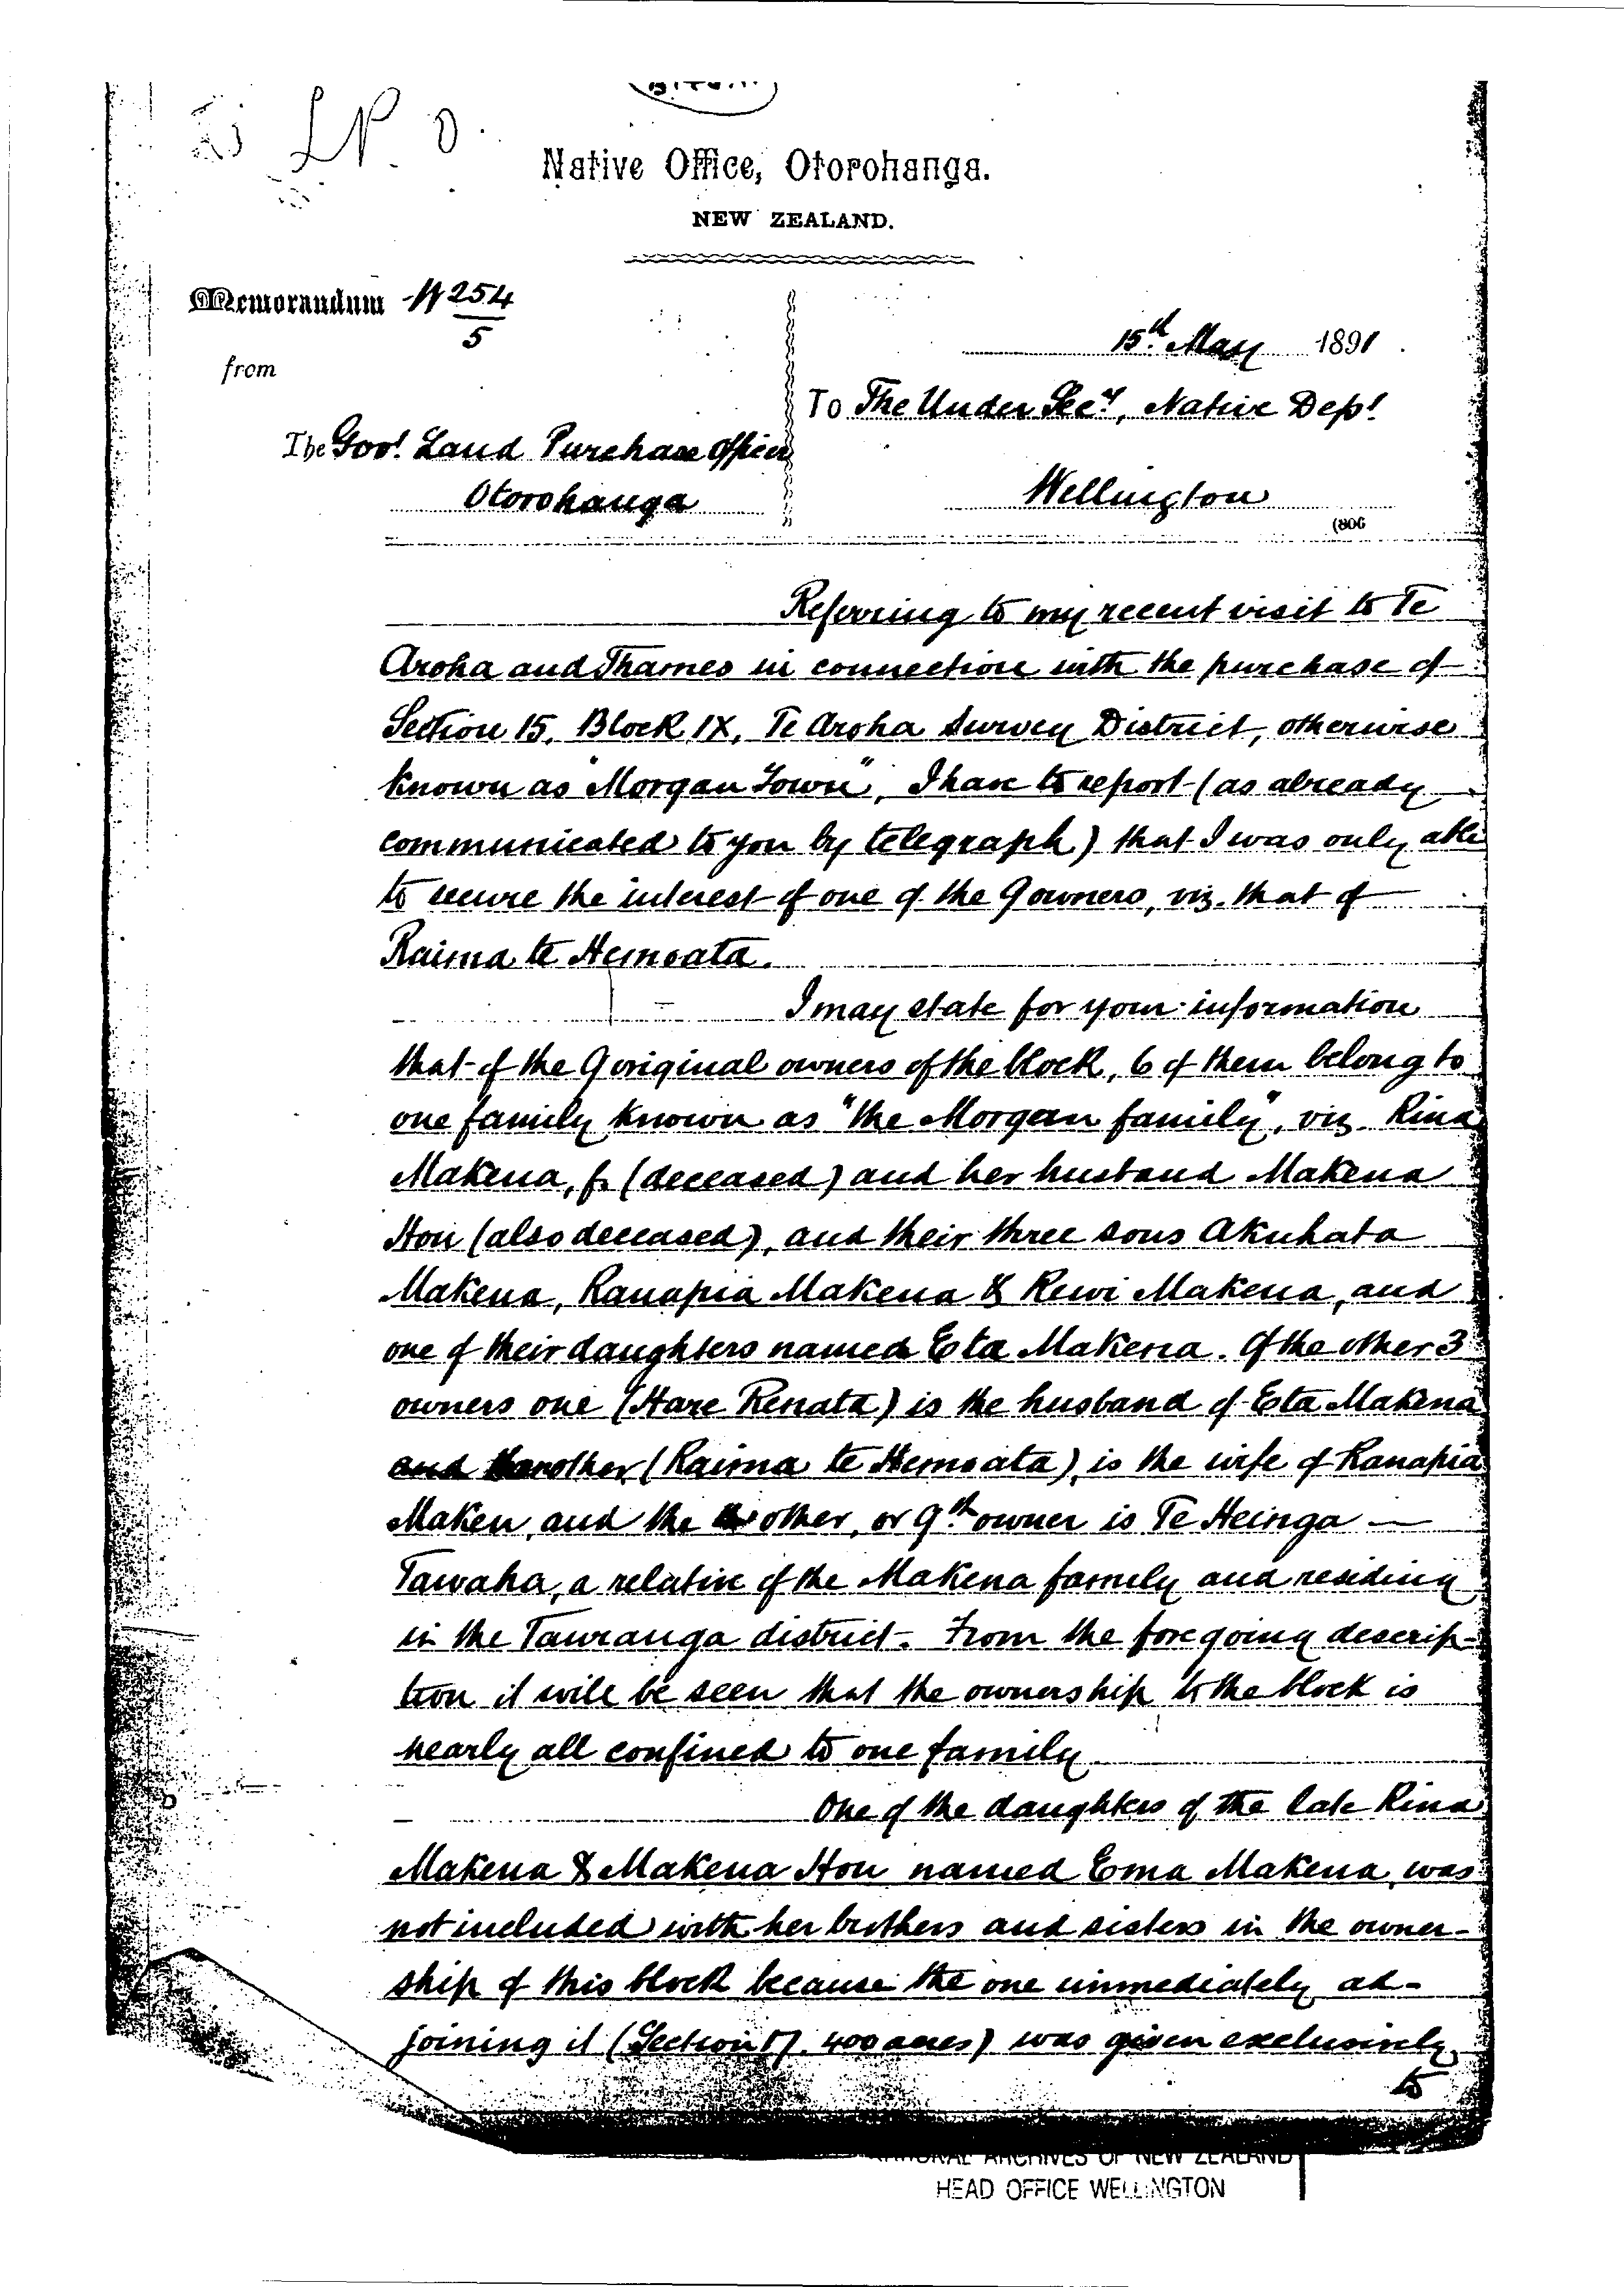 L.P. O.
Native Office, Otorohanga.
NEW ZEALAND.
Memorandum N 254/5
from
15th May 1891
To The Under Secy, Native Dept
The Govt Land Purchase Officer
Otorohanga
Wellington
(806
Referring to my recent visit to Te
Aroha and Thames in connection with the purchase of
Section 15, Block IX, Te Aroha Survey District, otherwise
known as "Morgan Town", I have to report (as already
communicated to you by telegraph) that I was only able
to secure the interest of one of the 9 owners, viz. that of
Raima te
I may state for your information
that of the 9 original owners of the block, 6 of them belong to
one family known as "the Morgan family", viz. Rina
Makena, f. (deceased) and her husband Makena
Hou (also deceased), and their three sons Akuhata
Makena, Ranapia Makena & Rewi Makena, and
one of their daughters named Eta Makena. Of the other 3
owners one (Hare Renata) is the husband of Eta Makena
and another (Raima te ), is the wife of Ranapia
Maken, and the other, or 9th owner is Te Heinga
Tawaha, a relative of the Makena family and residing
in the Tauranga district. From the foregoing descrip-
tion it will be seen that the ownership to the block is
nearly all confined to one family
One of the daughters of the late Rina
Makena & Makena Hou named Ema Makena, was
not included with her brothers and sisters in the owner-
ship of this block because the one immediately ad-
joining it (Section 17. 400 acres) was given exclusively
to
NATIONAL ARCHIVES OF NEW ZEALAND
HEAD OFFICE WELLINGTON